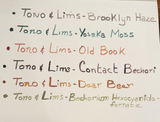 • Tono & Lims - Brooklyn Haze
• Tono & Lims - Yosaka Moss
• Tono & Lims - Old Book
• Tono & Lims - Contact Beckori
• Tono & Lims - Dear Bear
• Tono & Lims - Beckorium Hexocyanidoferrate